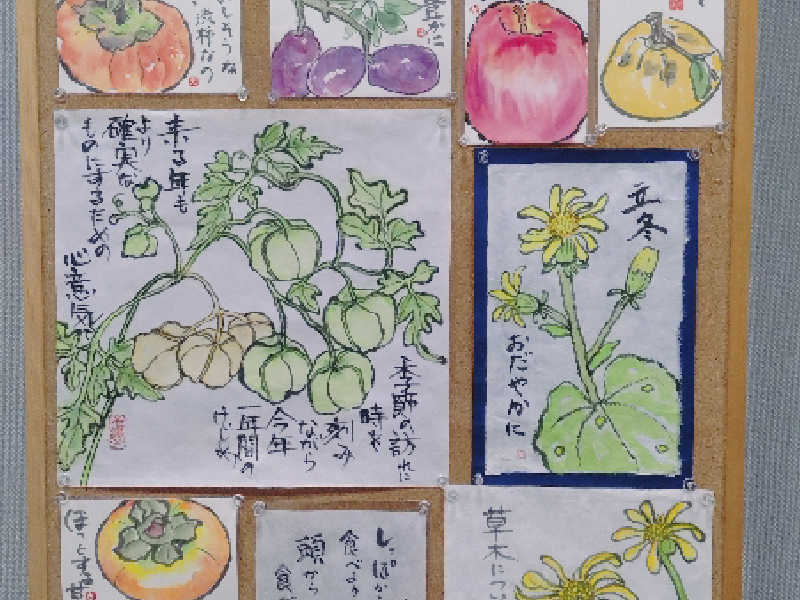 流柿なの
豊かに
来る年も
より
確実な
ものにするための
心意気
季節の訪れに
時を
刻み
ながら
今年
一年間の
けじめ
立冬
おだやかに
ほっとする甘
しっぽか
食べよう
頭から
食べ
草木につい